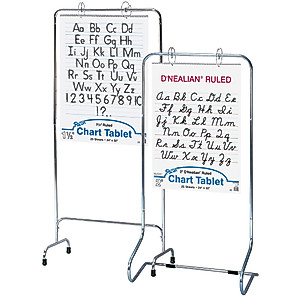 Aa Bb Cc Dd
Ee Ff Gg Hh Ii
Jj Kk Ll Mm
Nn Oo Pp Qq
Rr Ss Tt Uu
Vv Ww Xx
Yy Zz ! ?
12345678910
Ruled
Chart Tablet
D'NEALIAN* RULED
Aa Bb Cc Dd Ee
Ff Gg Hh Ii Jj Kk
Ll Mm Nn Oo Pp
Qq Rr Ss Tt Uu Vv
Ww Xx Yy Zz
D'Nealian* Ruled
Chart Tablet